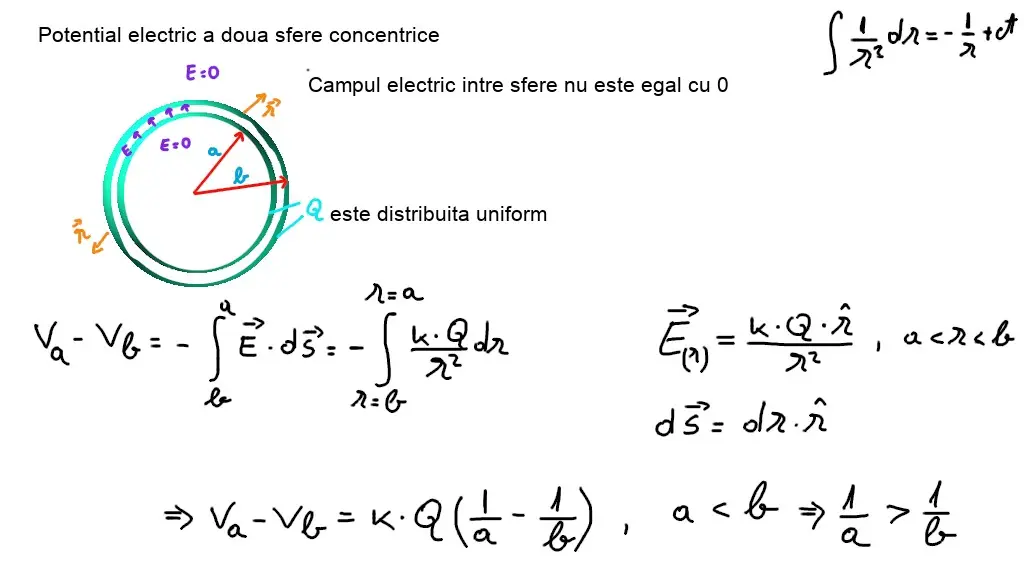 Potential electric a doua sfere concentrice
∫ 1/r² dr = -1/r + ct
E=0
Campul electric intre sfere nu este egal cu 0
r⃗
E
E=0
a
b
Q este distribuita uniform
r⃗
Va - Vb = - ∫_b^a E⃗ · ds⃗ = - ∫_{r=b}^{r=a} k·Q/r² dr
E⃗(r) = k·Q·r̂/r² , a<r<b
ds⃗ = dr·r̂
⇒ Va - Vb = k·Q(1/a - 1/b) , a < b ⇒ 1/a > 1/b